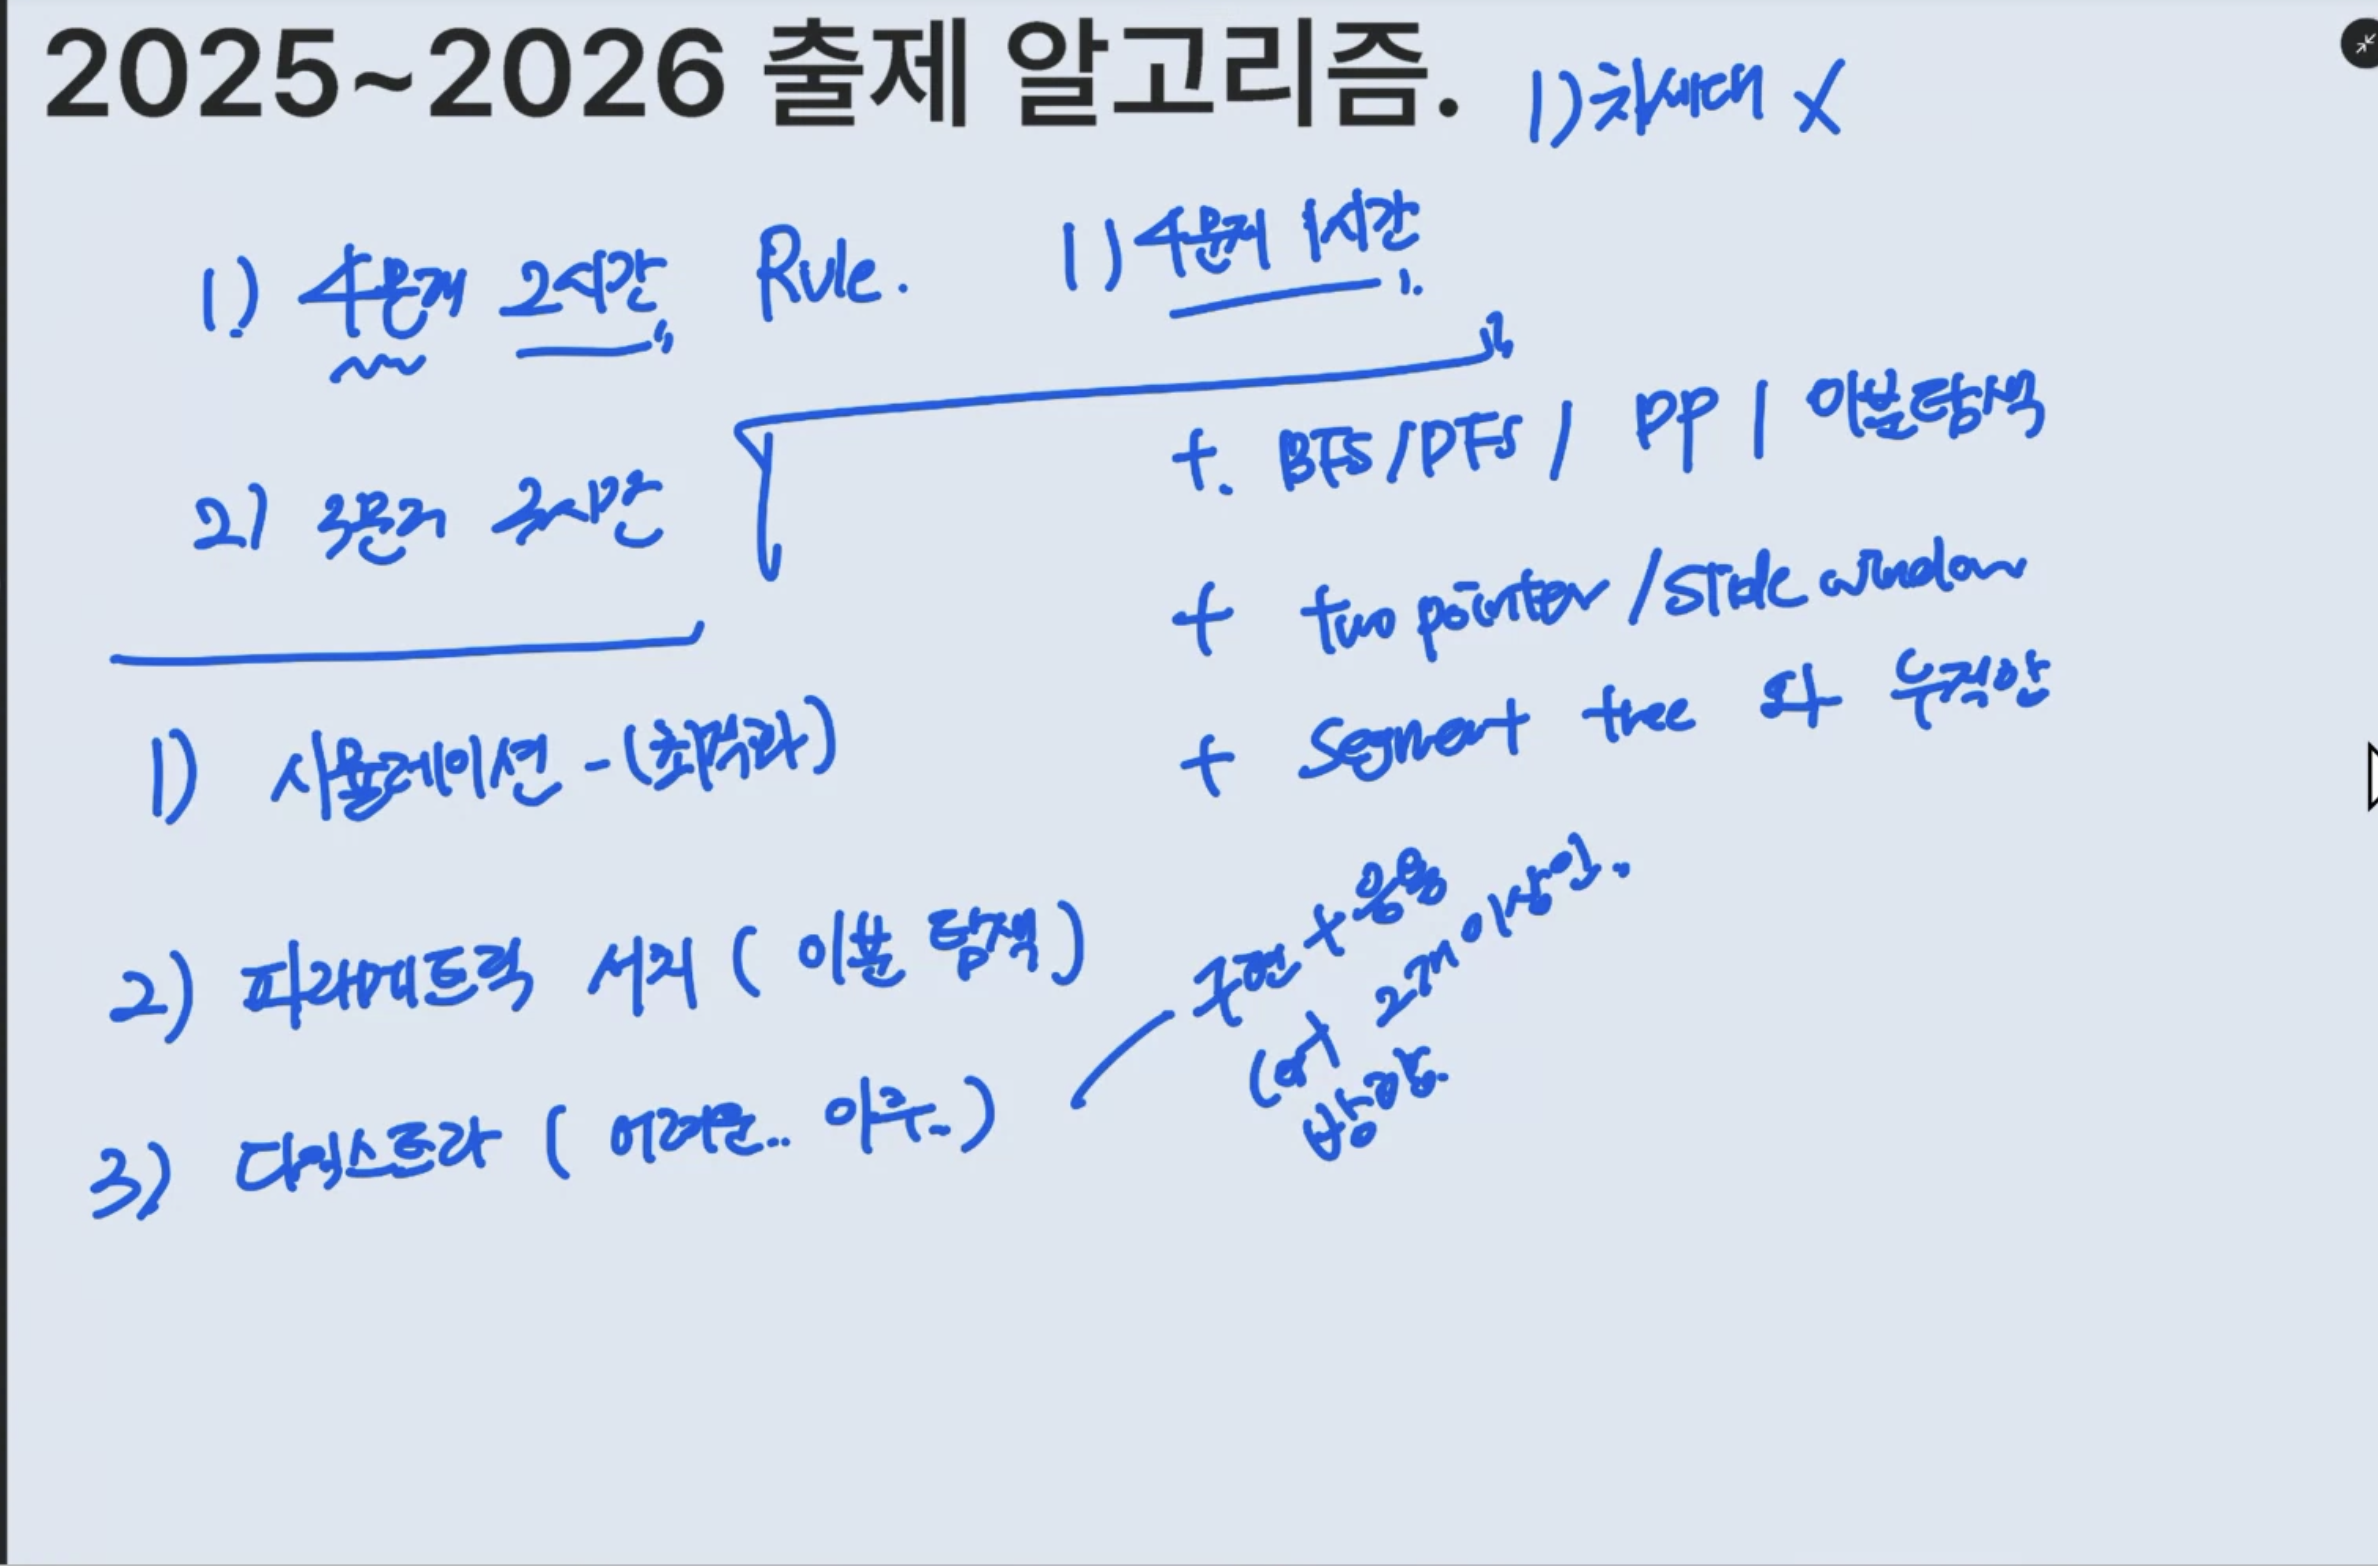 2025~2026 출제 알고리즘.
1) 차세대 X
1) 4문제 2시간
Rule.
1) 4문제 1시간
2) 3문제 3시간
+. BFS/DFS/ DP | 이분탐색
+ two pointer / Slide window
+ Segment tree 와 누적합
1) 시뮬레이션 - (최적화)
2) 파라메트릭 서치 ( 이분 탐색 )
3) 다익스트라 ( 어려운.. 아주.. )
구현 + 응용
2개 이상인.
방향